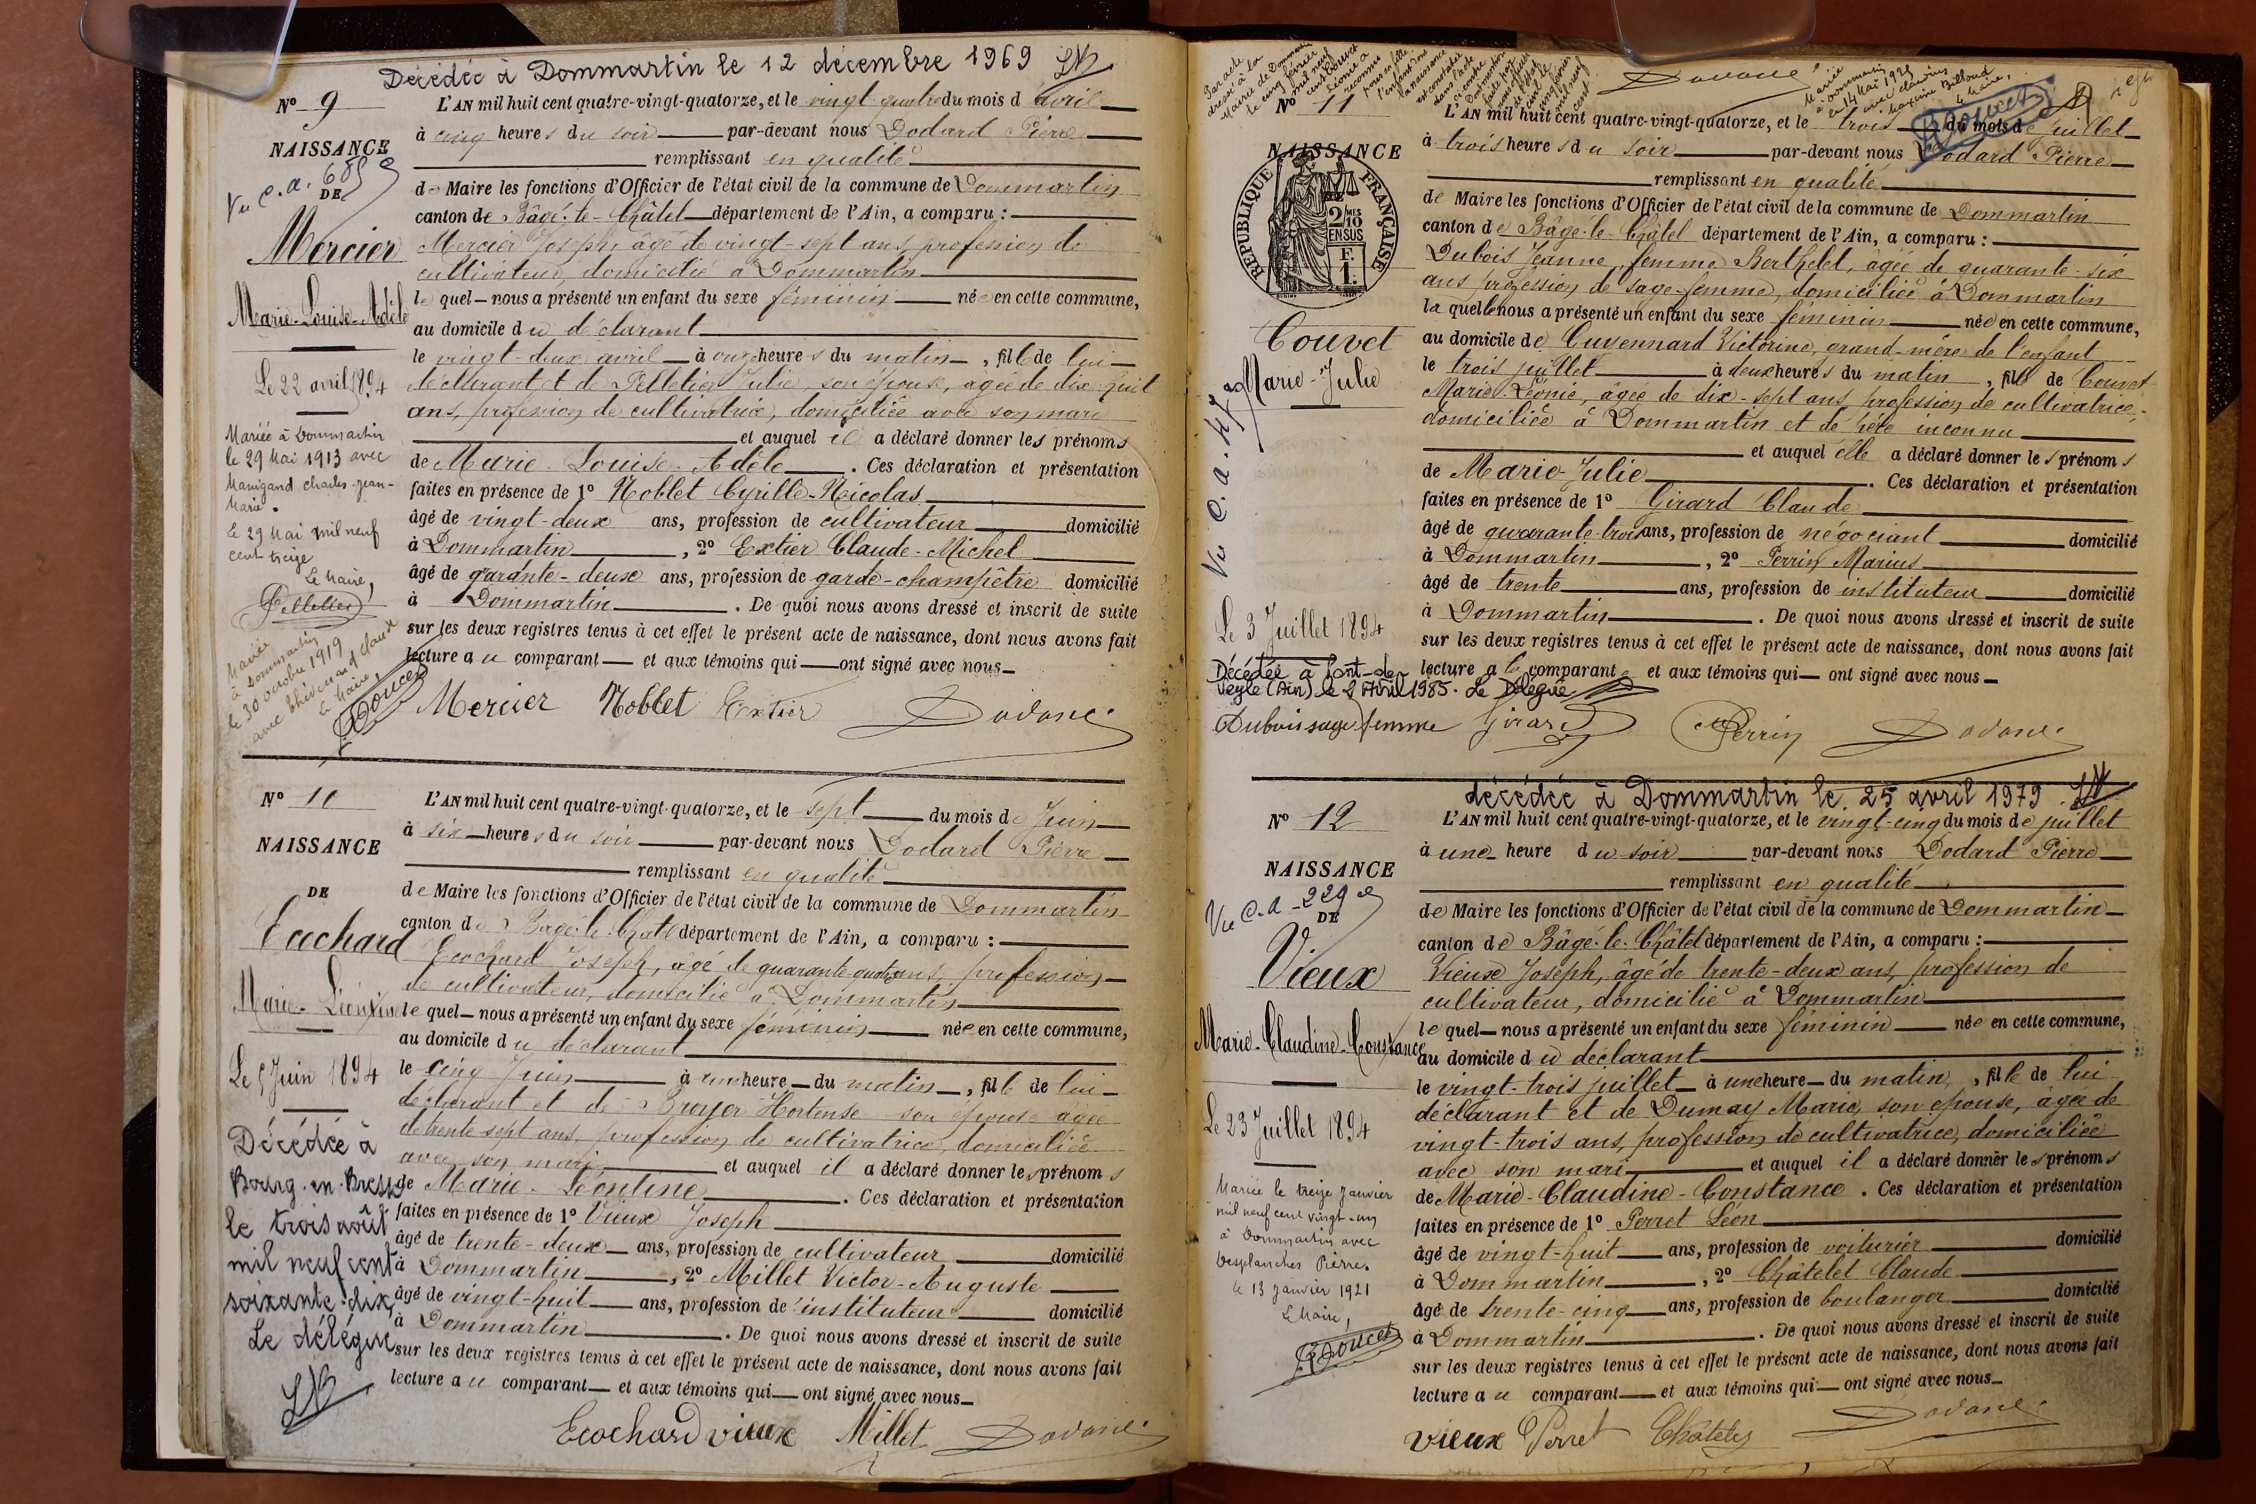 Décédée à Dommartin le 12 décembre 1969
N° 9
NAISSANCE
DE
Mercier
Marie-Louise-Adèle
Le 22 avril 1894
Mariée à Dommartin
le 29 Mai 1913 avec
Manigand Charles-Jean-
Marie.
Le 29 Mai mil neuf
cent treize
Le Maire,
Pelletier
Mariée
à Dommartin
le 30 octobre 1919
avec Chévenard Claude
Le Maire,
Doucet
L'AN mil huit cent quatre-vingt-quatorze, et le vingt-quatre du mois d'avril
à cinq heures du soir par-devant nous Dodard Pierre
remplissant en qualité
de Maire les fonctions d'Officier de l'état civil de la commune de Dommartin
canton de Bâgé-le-Châtel département de l'Ain, a comparu :
Mercier Joseph, âgé de vingt-sept ans, profession de
cultivateur, domicilié à Dommartin
le quel nous a présenté un enfant du sexe féminin née en cette commune,
au domicile du déclarant
le vingt-deux avril à onze heures du matin, fille de lui
déclarant et de Pelletier Julie, son épouse, âgée de dix-huit
ans, profession de cultivatrice, domiciliée avec son mari
et auquel il a déclaré donner les prénoms
de Marie-Louise-Adèle. Ces déclaration et présentation
faites en présence de 1° Noblet Cyrille-Nicolas
âgé de vingt-deux ans, profession de cultivateur domicilié
à Dommartin, 2° Extier Claude-Michel
âgé de quarante-deux ans, profession de garde-champêtre domicilié
à Dommartin. De quoi nous avons dressé et inscrit de suite
sur les deux registres tenus à cet effet le présent acte de naissance, dont nous avons fait
lecture au comparant et aux témoins qui ont signé avec nous
Mercier Noblet Extier Dodard
N° 10
NAISSANCE
DE
Ecochard
Marie-Léontine
Le 5 Juin 1894
Décédée à
Bourg-en-Bresse
le trois août
mil neuf cent
soixante-dix
Le délégué
L'AN mil huit cent quatre-vingt-quatorze, et le sept du mois de Juin
à six heures du soir par-devant nous Dodard Pierre
remplissant en qualité
de Maire les fonctions d'Officier de l'état civil de la commune de Dommartin
canton de Bâgé-le-Châtel département de l'Ain, a comparu :
Ecochard Joseph, âgé de quarante quatre ans, profession
de cultivateur, domicilié à Dommartin
le quel nous a présenté un enfant du sexe féminin née en cette commune,
au domicile du déclarant
le cinq Juin à une heure du matin, fille de lui
déclarant et de Broyer Hortense son épouse âgée
de trente-sept ans, profession de cultivatrice, domiciliée
avec son mari et auquel il a déclaré donner les prénoms
de Marie-Léontine. Ces déclaration et présentation
faites en présence de 1° Vieux Joseph
âgé de trente-deux ans, profession de cultivateur domicilié
à Dommartin, 2° Millet Victor-Auguste
âgé de vingt-huit ans, profession de instituteur domicilié
à Dommartin. De quoi nous avons dressé et inscrit de suite
sur les deux registres tenus à cet effet le présent acte de naissance, dont nous avons fait
lecture au comparant et aux témoins qui ont signé avec nous
Ecochard vieux Millet Dodard
Dodard
Mariée
à Dommartin
le 14 Mai 1921
avec Claudius
Maxime Billoud
Le Maire,
Doucet
N° 11
NAISSANCE
RÉPUBLIQUE FRANÇAISE
2/10 MES
EN SUS
F. 1.
Couvet
Marie-Julie
Le 3 Juillet 1894
Décédée à Pont-de-
Veyle (Ain) le 2 Avril 1985. Le Délégué
L'AN mil huit cent quatre-vingt-quatorze, et le trois du mois de juillet
à trois heures du soir par-devant nous Dodard Pierre
remplissant en qualité
de Maire les fonctions d'Officier de l'état civil de la commune de Dommartin
canton de Bâgé-le-Châtel département de l'Ain, a comparu :
Dubois Jeanne, femme Berthelet, âgée de quarante-six
ans profession de sage-femme, domiciliée à Dommartin
la quelle nous a présenté un enfant du sexe féminin née en cette commune,
au domicile de Cuvennard Victorine, grand-mère de l'enfant
le trois juillet à deux heures du matin, fille de Couvet
Marie-Léonie, âgée de dix-sept ans profession de cultivatrice,
domiciliée à Dommartin et de père inconnu
et auquel elle a déclaré donner les prénoms
de Marie-Julie. Ces déclaration et présentation
faites en présence de 1° Girard Claude
âgé de quarante-trois ans, profession de négociant domicilié
à Dommartin, 2° Perrin Marius
âgé de trente ans, profession de instituteur domicilié
à Dommartin. De quoi nous avons dressé et inscrit de suite
sur les deux registres tenus à cet effet le présent acte de naissance, dont nous avons fait
lecture à la comparante et aux témoins qui ont signé avec nous
Dubois sage femme Girard Perrin Dodard
décédée à Dommartin le 25 avril 1979
N° 12
NAISSANCE
Vu C.A. 229
DE
Vieux
Marie-Claudine-Constance
Le 23 Juillet 1894
Mariée le treize Janvier
mil neuf cent vingt-un
à Dommartin avec
Desplanches Pierre.
Le 13 Janvier 1921
Le Maire,
Doucet
L'AN mil huit cent quatre-vingt-quatorze, et le vingt-cinq du mois de juillet
à une heure du soir par-devant nous Dodard Pierre
remplissant en qualité
de Maire les fonctions d'Officier de l'état civil de la commune de Dommartin
canton de Bâgé-le-Châtel département de l'Ain, a comparu :
Vieux Joseph, âgé de trente-deux ans, profession de
cultivateur, domicilié à Dommartin
le quel nous a présenté un enfant du sexe féminin née en cette commune,
au domicile du déclarant
le vingt-trois juillet à une heure du matin, fille de lui
déclarant et de Dumay Marie, son épouse, âgée de
vingt-trois ans, profession de cultivatrice, domiciliée
avec son mari et auquel il a déclaré donner les prénoms
de Marie-Claudine-Constance. Ces déclaration et présentation
faites en présence de 1° Perret Léon
âgé de vingt-huit ans, profession de voiturier domicilié
à Dommartin, 2° Châtelet Claude
âgé de trente-cinq ans, profession de boulanger domicilié
à Dommartin. De quoi nous avons dressé et inscrit de suite
sur les deux registres tenus à cet effet le présent acte de naissance, dont nous avons fait
lecture au comparant et aux témoins qui ont signé avec nous
vieux Perret Châtelet Dodard